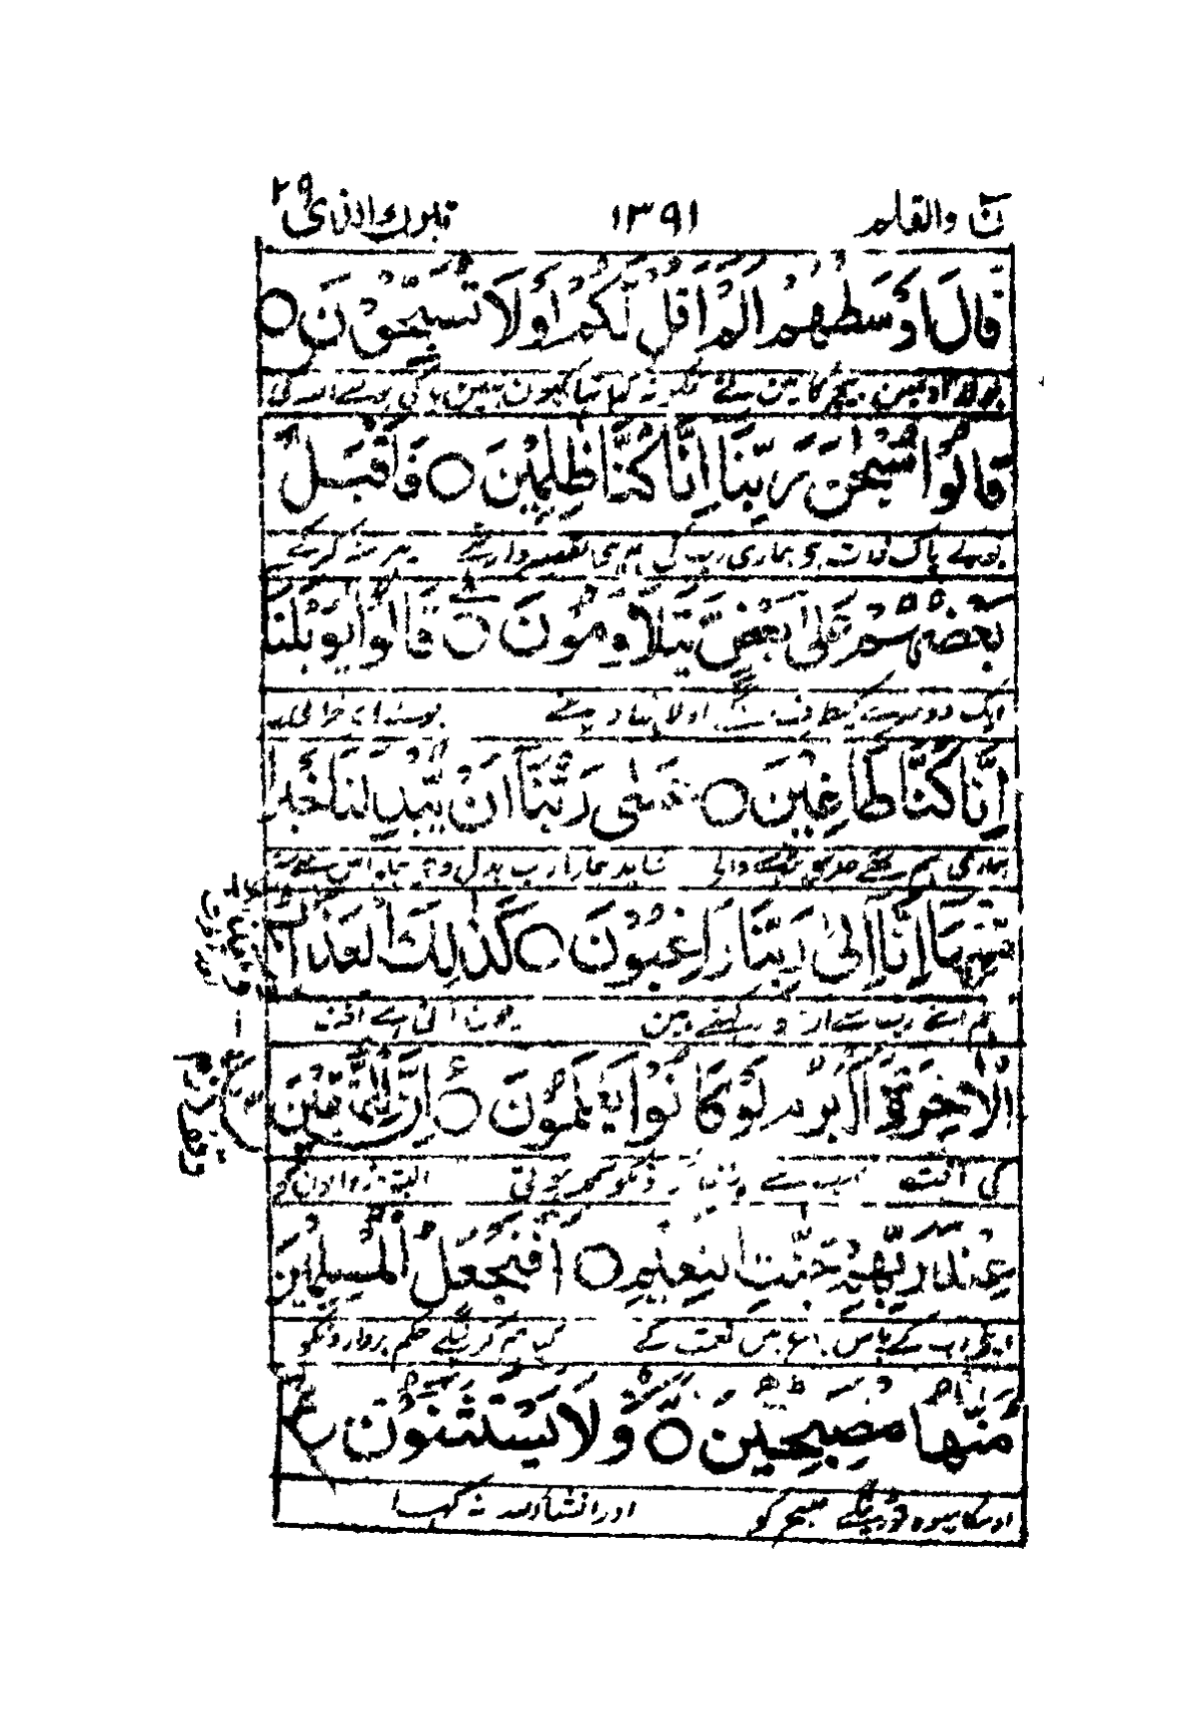 نٓ والقلم ۱۳۹۱ تبرك الذی ۲۹
قَالَ اَوْسَطُهُمْ اَلَمْ اَقُلْ لَّكُمْ لَوْلَا تُسَبِّحُوْنَ ○
بولا اون بیچ کا مین نے تمکو نہ کہا تھا کیون نہین پاکی بولتے اللہ کی
قَالُوْا سُبْحٰنَ رَبِّنَا اِنَّا كُنَّا ظٰلِمِيْنَ ○ فَاَقْبَلَ
بولے پاک ذات ہی ہماری رب کی ہم ہی تقصیروار تھے پھر منہ کر کے
بَعْضُهُمْ عَلٰى بَعْضٍ يَّتَلَاوَمُوْنَ ○ قَالُوْا يٰوَيْلَنَا
ایک دوسرے کیطرف لگے اولاہنا دینے بولے ای خرابی
اِنَّا كُنَّا طٰاغِيْنَ ○ عَسٰى رَبُّنَا اَنْ يُّبْدِلَنَا خَيْرًا
ہماری ہم تھے حد سے بڑھنے والی شاید ہمارا رب بدل دے ہمکو اس سے بہتر
مِّنْهَا اِنَّا اِلٰى رَبِّنَا رَاغِبُوْنَ ○ كَذٰلِكَ الْعَذَابُ
ہم اپنے رب سے آرزو رکھتے ہین یون آتی ہے آفت
الْاٰخِرَةِ اَكْبَرُ لَوْ كَانُوْا يَعْلَمُوْنَ ○ اِنَّ لِلْمُتَّقِيْنَ
کی آفت سب سے بڑی اگر اونکو سمجھ ہوتی البتہ ڈروالون کو
عِنْدَ رَبِّهِمْ جَنّٰتِ النَّعِيْمِ ○ اَفَنَجْعَلُ الْمُسْلِمِيْنَ
اپنی رب کے پاس باغ ہین نعمت کے کیا ہم کرینگے حکم بردارونکو
مُصْبِحِيْنَ ○ وَلَا يَسْتَثْنُوْنَ
اوسکا میوہ توڑینگے صبح کو اور انشاءاللہ نہ کہا